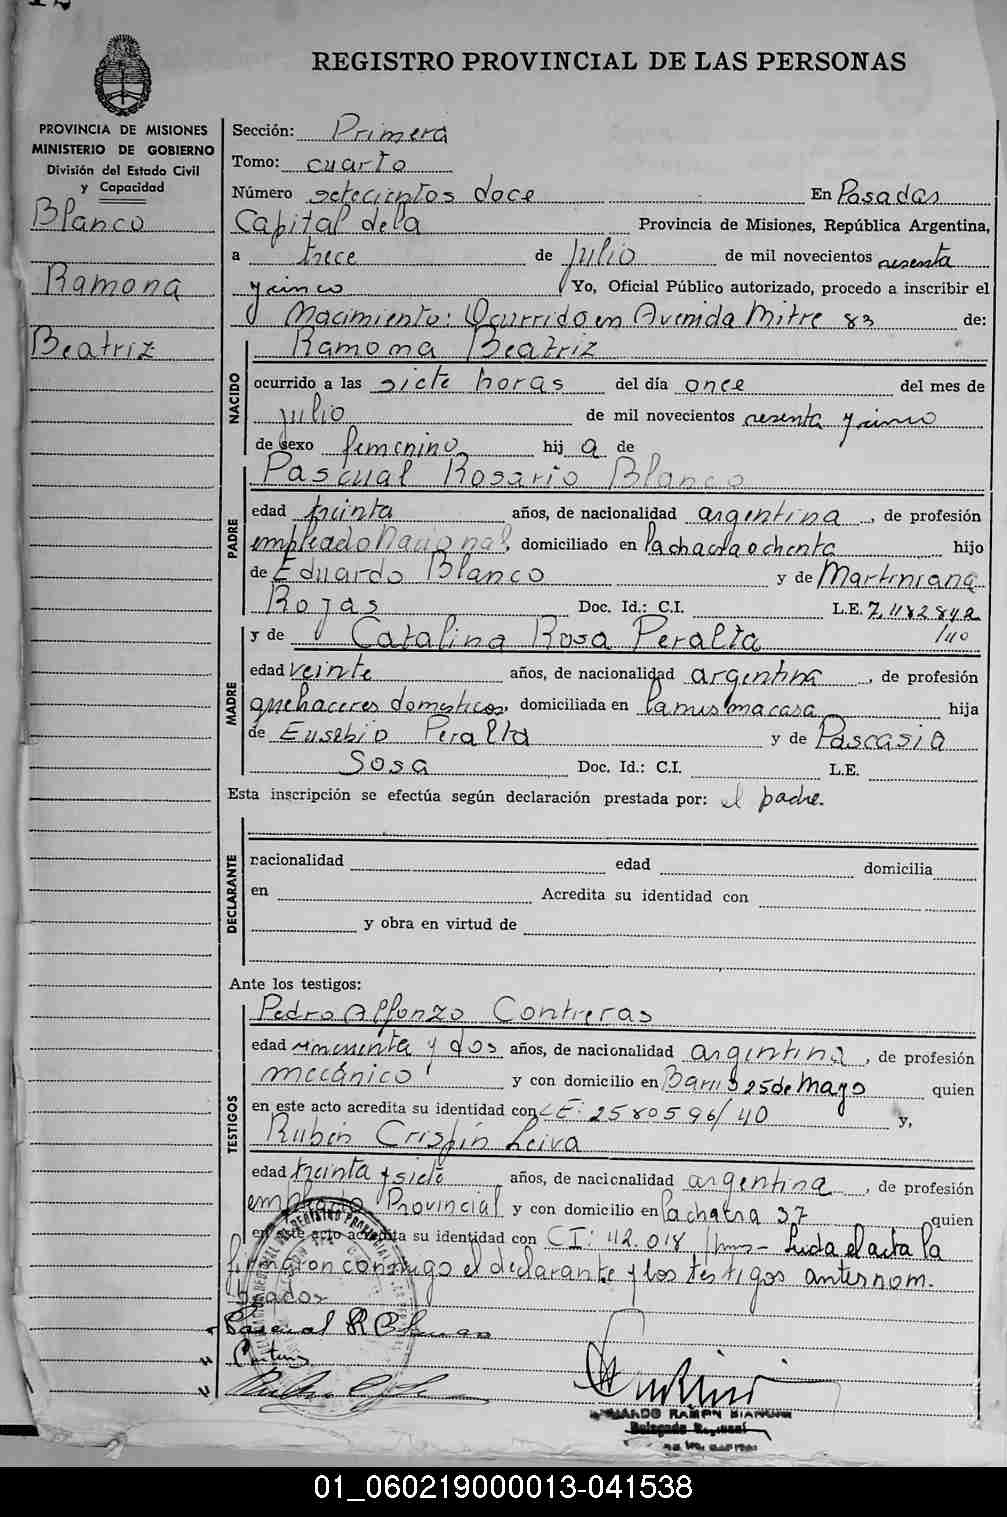 REGISTRO PROVINCIAL DE LAS PERSONAS
PROVINCIA DE MISIONES
MINISTERIO DE GOBIERNO
División del Estado Civil
y Capacidad
Blanco
Ramona
Beatriz
Sección: Primera
Tomo: cuarto
Número setecientos doce En Posadas
Capital dela Provincia de Misiones, República Argentina,
a trece de julio de mil novecientos sesenta
y cinco Yo, Oficial Público autorizado, procedo a inscribir el
Nacimiento: Ocurrido en Avenida Mitre 83 de:
NACIDO
Ramona Beatriz
ocurrido a las siete horas del día once del mes de
julio de mil novecientos sesenta y cinco
de sexo femenino hij a de
PADRE
Pascual Rosario Blanco
edad treinta años, de nacionalidad argentina, de profesión
empleado Nacional, domiciliado en la chacra ochenta hijo
de Eduardo Blanco y de Martiniana
Rojas Doc. Id.: C.I. L.E. 7.482842
/40
y de Catalina Rosa Peralta
MADRE
edad veinte años, de nacionalidad argentina, de profesión
quehaceres domesticos, domiciliada en la misma casa hija
de Eusebio Peralta y de Pascasia
Sosa Doc. Id.: C.I. L.E.
Esta inscripción se efectúa según declaración prestada por: el padre.
DECLARANTE
nacionalidad edad domicilia
en Acredita su identidad con
y obra en virtud de
Ante los testigos:
TESTIGOS
Pedro Alfonzo Contreras
edad cincuenta y dos años, de nacionalidad argentina, de profesión
mecánico y con domicilio en Barrio 25 de Mayo quien
en este acto acredita su identidad con LE: 2580596/40 y,
Rubén Crispín Leiva
edad treinta y siete años, de nacionalidad argentina, de profesión
empleado Provincial y con domicilio en la chacra 37 quien
en este acto acredita su identidad con CI: 42.018 Mnes- Leida el acta la
firmaron conmigo el declarante y los testigos antes nom.
brados
Pascual R Blanco
Delegado Regional
01_060219000013-041538